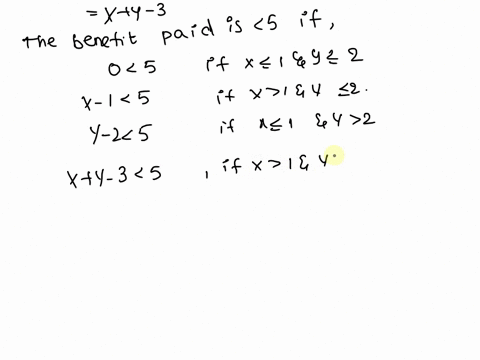 = x+y-3
The benefit paid is <5 if,
0<5 if x≤1 & y≤2
x-1<5 if x>1 & y ≤2.
y-2<5 if x≤1 & y>2
x+y-3<5 , if x>1 & y